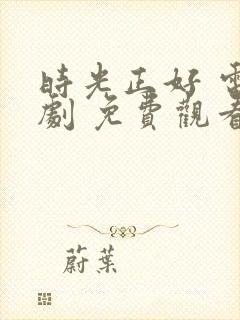 時光正好 電
劇 免費觀看
蔚葉